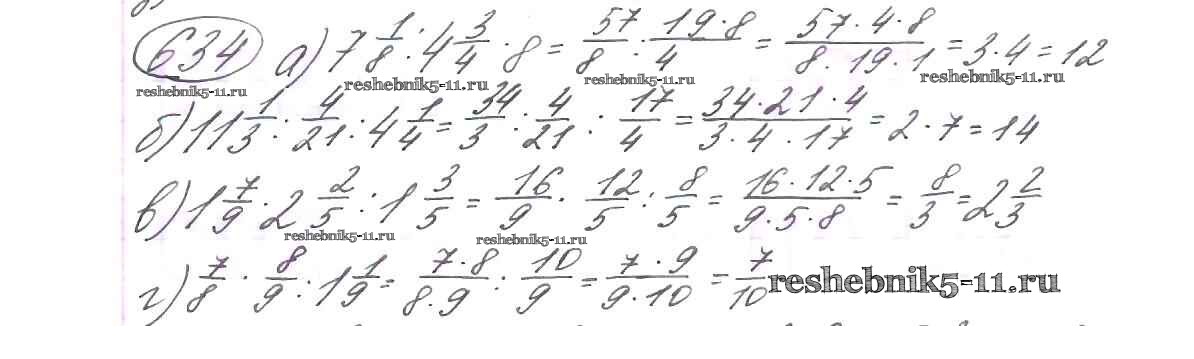 634 а) 7 1/8 : 4 3/4 · 8 = 57/8 : 19·8/4 = 57·4·8/8·19·1 = 3·4 = 12
reshebnik5-11.ru reshebnik5-11.ru reshebnik5-11.ru reshebnik5-11.ru
б) 11 1/3 : 4/21 : 4 1/4 = 34/3 : 4/21 : 17/4 = 34·21·4/3·4·17 = 2·7 = 14
в) 1 7/9 · 2 2/5 : 1 3/5 = 16/9 · 12/5 : 8/5 = 16·12·5/9·5·8 = 8/3 = 2 2/3
reshebnik5-11.ru reshebnik5-11.ru
г) 7/8 · 8/9 : 1 1/9 = 7·8/8·9 : 10/9 = 7·9/9·10 = 7/10 reshebnik5-11.ru